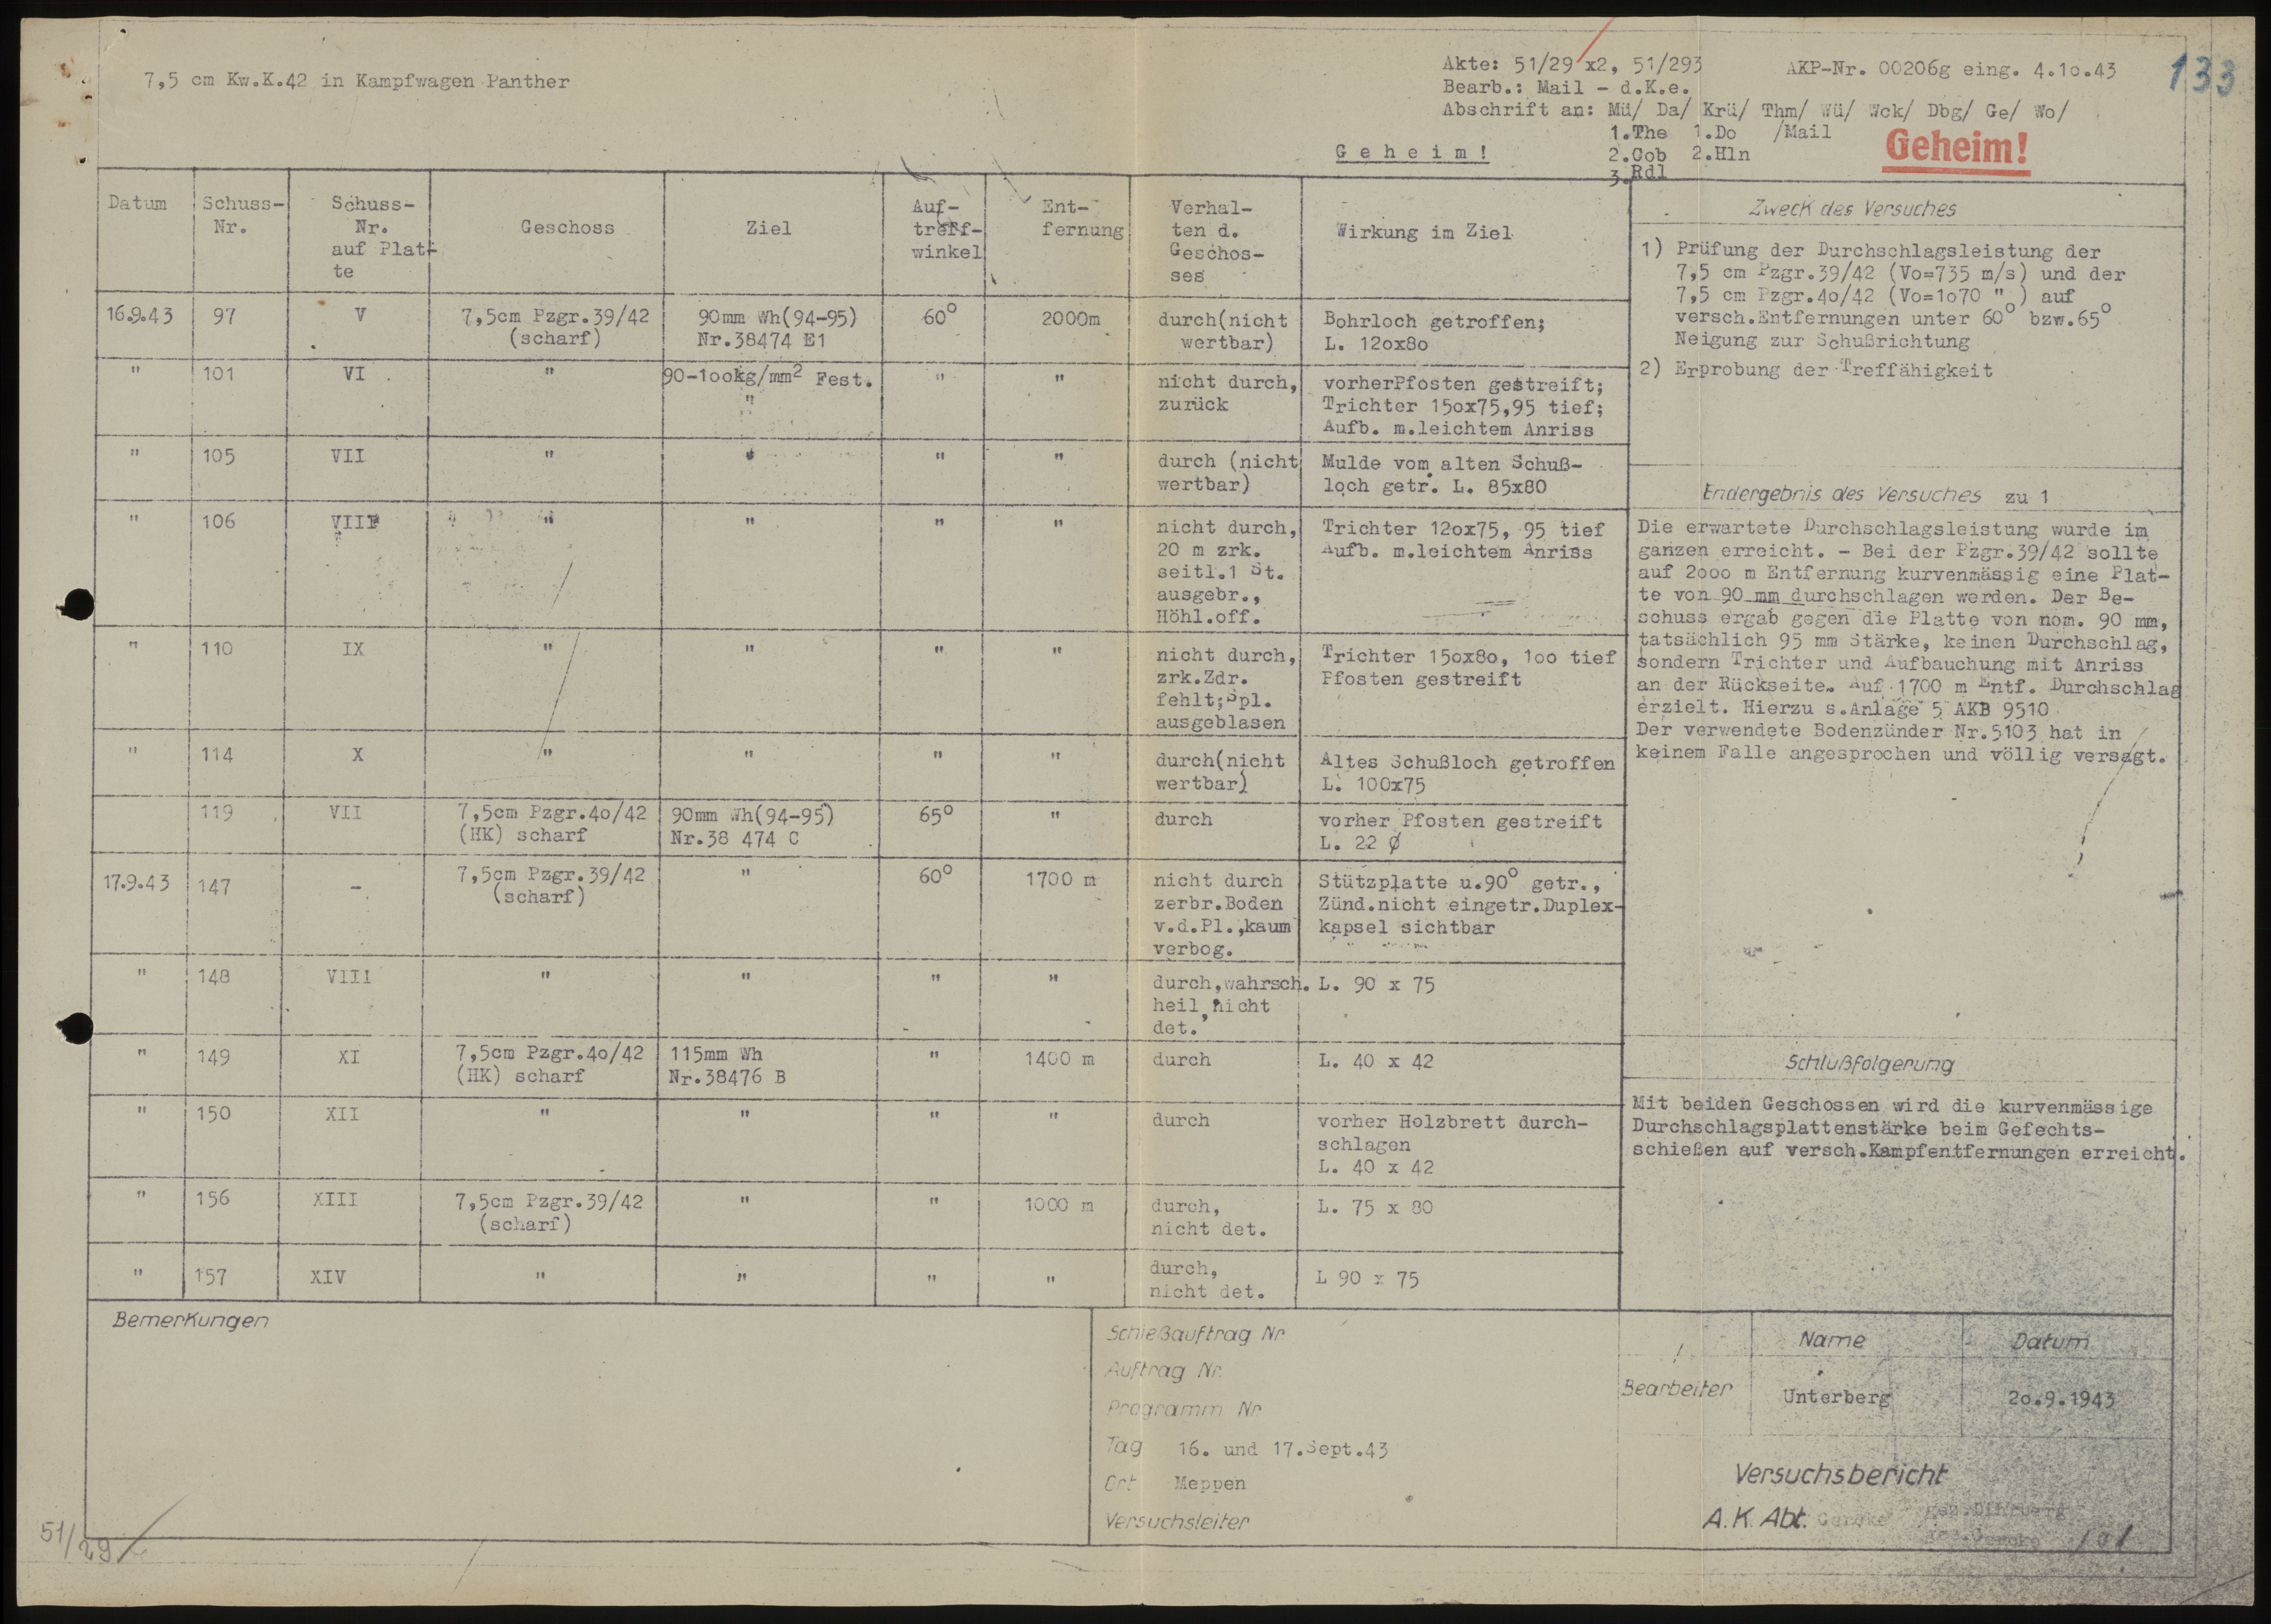 7,5 cm Kw.K.42 in Kampfwagen Panther
Akte: 51/29 x2, 51/293
AKP-Nr. 00206g eing. 4.1o.43
133
Bearb.: Mail - d.K.e.
Abschrift an: Mü/ Da/ Krü/ Thm/ Wü/ Wck/ Dbg/ Ge/ Wo/
1.The 1.Do /Mail
2.Cob 2.Hln
3.Rdl
Geheim!
Geheim!
Datum
Schuss-
Nr.
Schuss-
Nr.
auf Plat-
te
Geschoss
Ziel
Auf-
treff-
winkel
Ent-
fernung
Verhal-
ten d.
Geschos-
ses
Wirkung im Ziel
16.9.43 97 V 7,5cm Pzgr.39/42 90mm Wh(94-95) 60° 2000m durch(nicht Bohrloch getroffen;
(scharf) Nr.38474 E1 wertbar) L. 12ox8o
" 101 VI " 90-1ookg/mm² Fest. " " nicht durch, vorherPfosten gestreift;
" zurück Trichter 15ox75,95 tief;
Aufb. m.leichtem Anriss
" 105 VII " " " " durch (nicht Mulde vom alten Schuß-
wertbar) loch getr. L. 85x80
" 106 VIII " " " " nicht durch, Trichter 12ox75, 95 tief
20 m zrk. Aufb. m.leichtem Anriss
seitl.1 St.
ausgebr.,
Höhl.off.
" 110 IX " " " " nicht durch, Trichter 15ox8o, 1oo tief
zrk.Zdr. Pfosten gestreift
fehlt;Spl.
ausgeblasen
" 114 X " " " " durch(nicht Altes Schußloch getroffen
wertbar) L. 100x75
119 VII 7,5cm Pzgr.4o/42 90mm Wh(94-95) 65° " durch vorher Pfosten gestreift
(HK) scharf Nr.38 474 C L. 22 Ø
17.9.43 147 - 7,5cm Pzgr.39/42 " 60° 1700 m nicht durch Stützplatte u.90° getr.,
(scharf) zerbr.Boden Zünd.nicht eingetr.Duplex-
v.d.Pl.,kaum kapsel sichtbar
verbog.
" 148 VIII " " " " durch,wahrsch. L. 90 x 75
heil,nicht
det.
" 149 XI 7,5cm Pzgr.4o/42 115mm Wh " 1400 m durch L. 40 x 42
(HK) scharf Nr.38476 B
" 150 XII " " " " durch vorher Holzbrett durch-
schlagen
L. 40 x 42
" 156 XIII 7,5cm Pzgr.39/42 " " 1000 m durch, L. 75 x 80
(scharf) nicht det.
" 157 XIV " " " " durch, L 90 x 75
nicht det.
Zweck des Versuches
1) Prüfung der Durchschlagsleistung der
7,5 cm Pzgr.39/42 (Vo=735 m/s) und der
7,5 cm Pzgr.4o/42 (Vo=1o70 " ) auf
versch.Entfernungen unter 60° bzw.65°
Neigung zur Schußrichtung
2) Erprobung der Treffähigkeit
Endergebnis des Versuches zu 1
Die erwartete Durchschlagsleistung wurde im
ganzen erreicht. - Bei der Pzgr.39/42 sollte
auf 2ooo m Entfernung kurvenmässig eine Plat-
te von 90 mm durchschlagen werden. Der Be-
schuss ergab gegen die Platte von nom. 90 mm,
tatsächlich 95 mm Stärke, keinen Durchschlag,
sondern Trichter und Aufbauchung mit Anriss
an der Rückseite. Auf 1700 m Entf. Durchschlag
erzielt. Hierzu s.Anlage 5 AKB 9510
Der verwendete Bodenzünder Nr.5103 hat in
keinem Falle angesprochen und völlig versagt.
Schlußfolgerung
Mit beiden Geschossen wird die kurvenmässige
Durchschlagsplattenstärke beim Gefechts-
schießen auf versch.Kampfentfernungen erreicht.
Bemerkungen
Schießauftrag Nr
Auftrag Nr.
Programm Nr
Tag 16. und 17.Sept.43
Ort Meppen
Versuchsleiter
Name Datum
Bearbeiter Unterberg 2o.9.1943
Versuchsbericht
A.K. Abt.
51/29